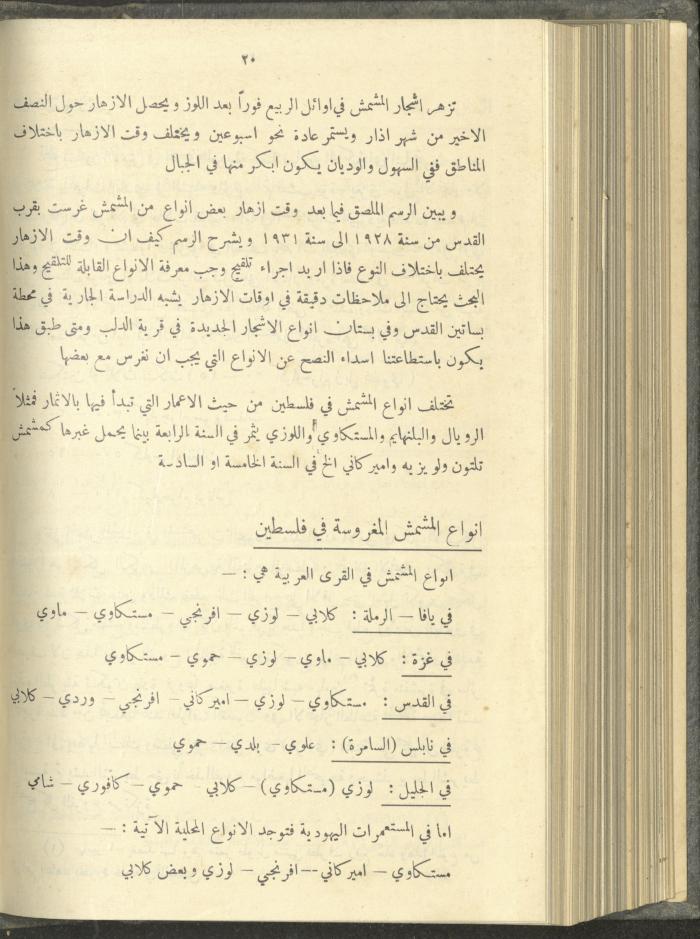 ٢٠
تزهر اشجار المشمش في اوائل الربيع فوراً بعد اللوز ويحصل الازهار حول النصف
الاخير من شهر اذار ويستمر عادة نحو اسبوعين ويختلف وقت الازهار باختلاف
المناطق ففي السهول والوديان يكون ابكر منها في الجبال
ويبين الرسم الملصق فيما بعد وقت ازهار بعض انواع من المشمش غرست بقرب
القدس من سنة ١٩٢٨ الى سنة ١٩٣١ ويشرح الرسم كيف ان وقت الازهار
يختلف باختلاف النوع فاذا اريد اجراء تلقيح وجب معرفة الانواع القابلة للتلقيح وهذا
البحث يحتاج الى ملاحظات دقيقة في اوقات الازهار يشبه الدراسة الجارية في محطة
بساتين القدس وفي بستان انواع الاشجار الجديدة في قرية الدلب ومتى طبق هذا
يكون باستطاعتنا اسداء النصح عن الانواع التي يجب ان نغرس مع بعضها
تختلف انواع المشمش في فلسطين من حيث الاعمار التي تبدأ فيها بالاثمار فمثلاً
الرويال والبلنهايم والمستكاوي واللوزي يثمر في السنة الرابعة بينما يحمل غيرها كمشمش
تلتون ولويزيه واميركاني الخ في السنة الخامسة او السادسة
انواع المشمش المغروسة في فلسطين
انواع المشمش في القرى العربية هي : —
في يافا — الرملة : كلابي — لوزي — افرنجي — مستكاوي — ماوي
في غزة : كلابي — ماوي — لوزي — حموي — مستكاوي
في القدس : مستكاوي — لوزي — اميركاني — افرنجي — وردي — كلابي
في نابلس (السامرة) : علوي — بلدي — حموي
في الجليل : لوزي (مستكاوي) — كلابي - حموي — كافوري — شامي
اما في المستعمرات اليهودية فتوجد الانواع المحلية الآتية : —
مستكاوي — اميركاني -- افرنجي — لوزي وبعض كلابي